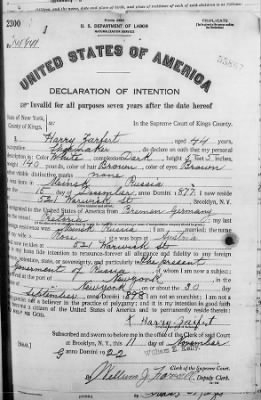 2300
U. S. DEPARTMENT OF LABOR
NATURALIZATION SERVICE
UNITED STATES OF AMERICA
DECLARATION OF INTENTION
Invalid for all purposes seven years after the date hereof
State of New York,
County of Kings,
In the Supreme Court of Kings County.
I, Harry Farfert, aged 44 years,
occupation do declare on oath that my personal
description is: Color White, complexion Dark, height 5 feet inches,
weight 140 pounds, color of hair Brown, color of eyes Brown
other visible distinctive marks none
Minsk Russia
15 day , anno Domini 1877; I now reside
at 521 Warwick St Brooklyn, N.Y.
I emigrated to the United States of America from Bremen Germany
on the vessel my last
foreign residence was Minsk Russia; I am married; the name
of my wife is Rose; she was born at Austria
and now resides at 521 Warwick St
It is my bona fide intention to renounce forever all allegiance and fidelity to any foreign
prince, potentate, state, or sovereignty, and particularly to The present
Government of Russia of whom I am now a subject;
I arrived at the port of Newyork, in the
State of Newyork, on or about the 30 day
of September, anno Domini 1898; I am not an anarchist; I am not a
polygamist nor a believer in the practice of polygamy; and it is my intention in good faith
to become a citizen of the United States of America and to permanently reside therein:
SO HELP ME GOD.
x Harry Farfert
Subscribed and sworn to before me in the office of the Clerk of said Court
at Brooklyn, N.Y., this 11 day of November
anno Domini 1922
William E. Kelly
Clerk of the Supreme Court.
By William J. , Deputy Clerk.